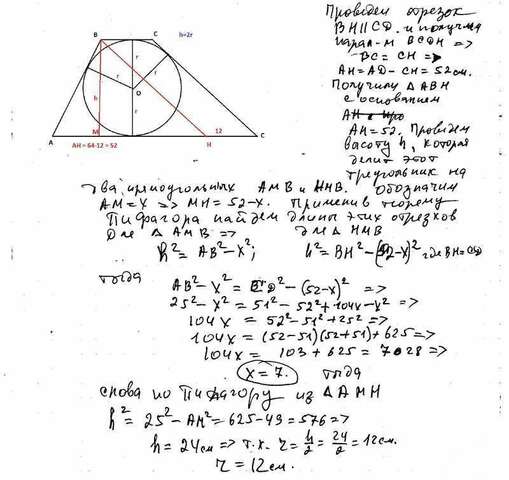 B
C
h=2r
r
r
r
O
h
r
12
A
M
H
C
AH = 64-12 = 52
Проведём отрезок
BH∥CD. и получим
парал-м BCDH =>
BC = CH =>
AH = AD - CH = 52 см.
Получили △ABH
с основанием
AH = 52. Проведём
высоту h, которая
делит этот
треугольник на
два прямоугольных AMB и HMB. Обозначим
AM = x => MH = 52-x. Применив теорему
Пифагора найдём длины этих отрезков
Для △AMB => для △HMB
h² = AB² - x²; h² = BH² - (52-x)² где BH=CD
тогда
AB² - x² = CD² - (52-x)² =>
25² - x² = 51² - 52² + 104x - x² =>
104x = 52² - 51² + 25² =>
104x = (52-51)(52+51) + 625 =>
104x = 103 + 625 = 728 =>
x = 7. тогда
снова по Пифагору из △AMH
h² = 25² - AM² = 625 - 49 = 576 =>
h = 24 см => т.к. r = h/2 = 24/2 = 12 см.
r = 12 см.